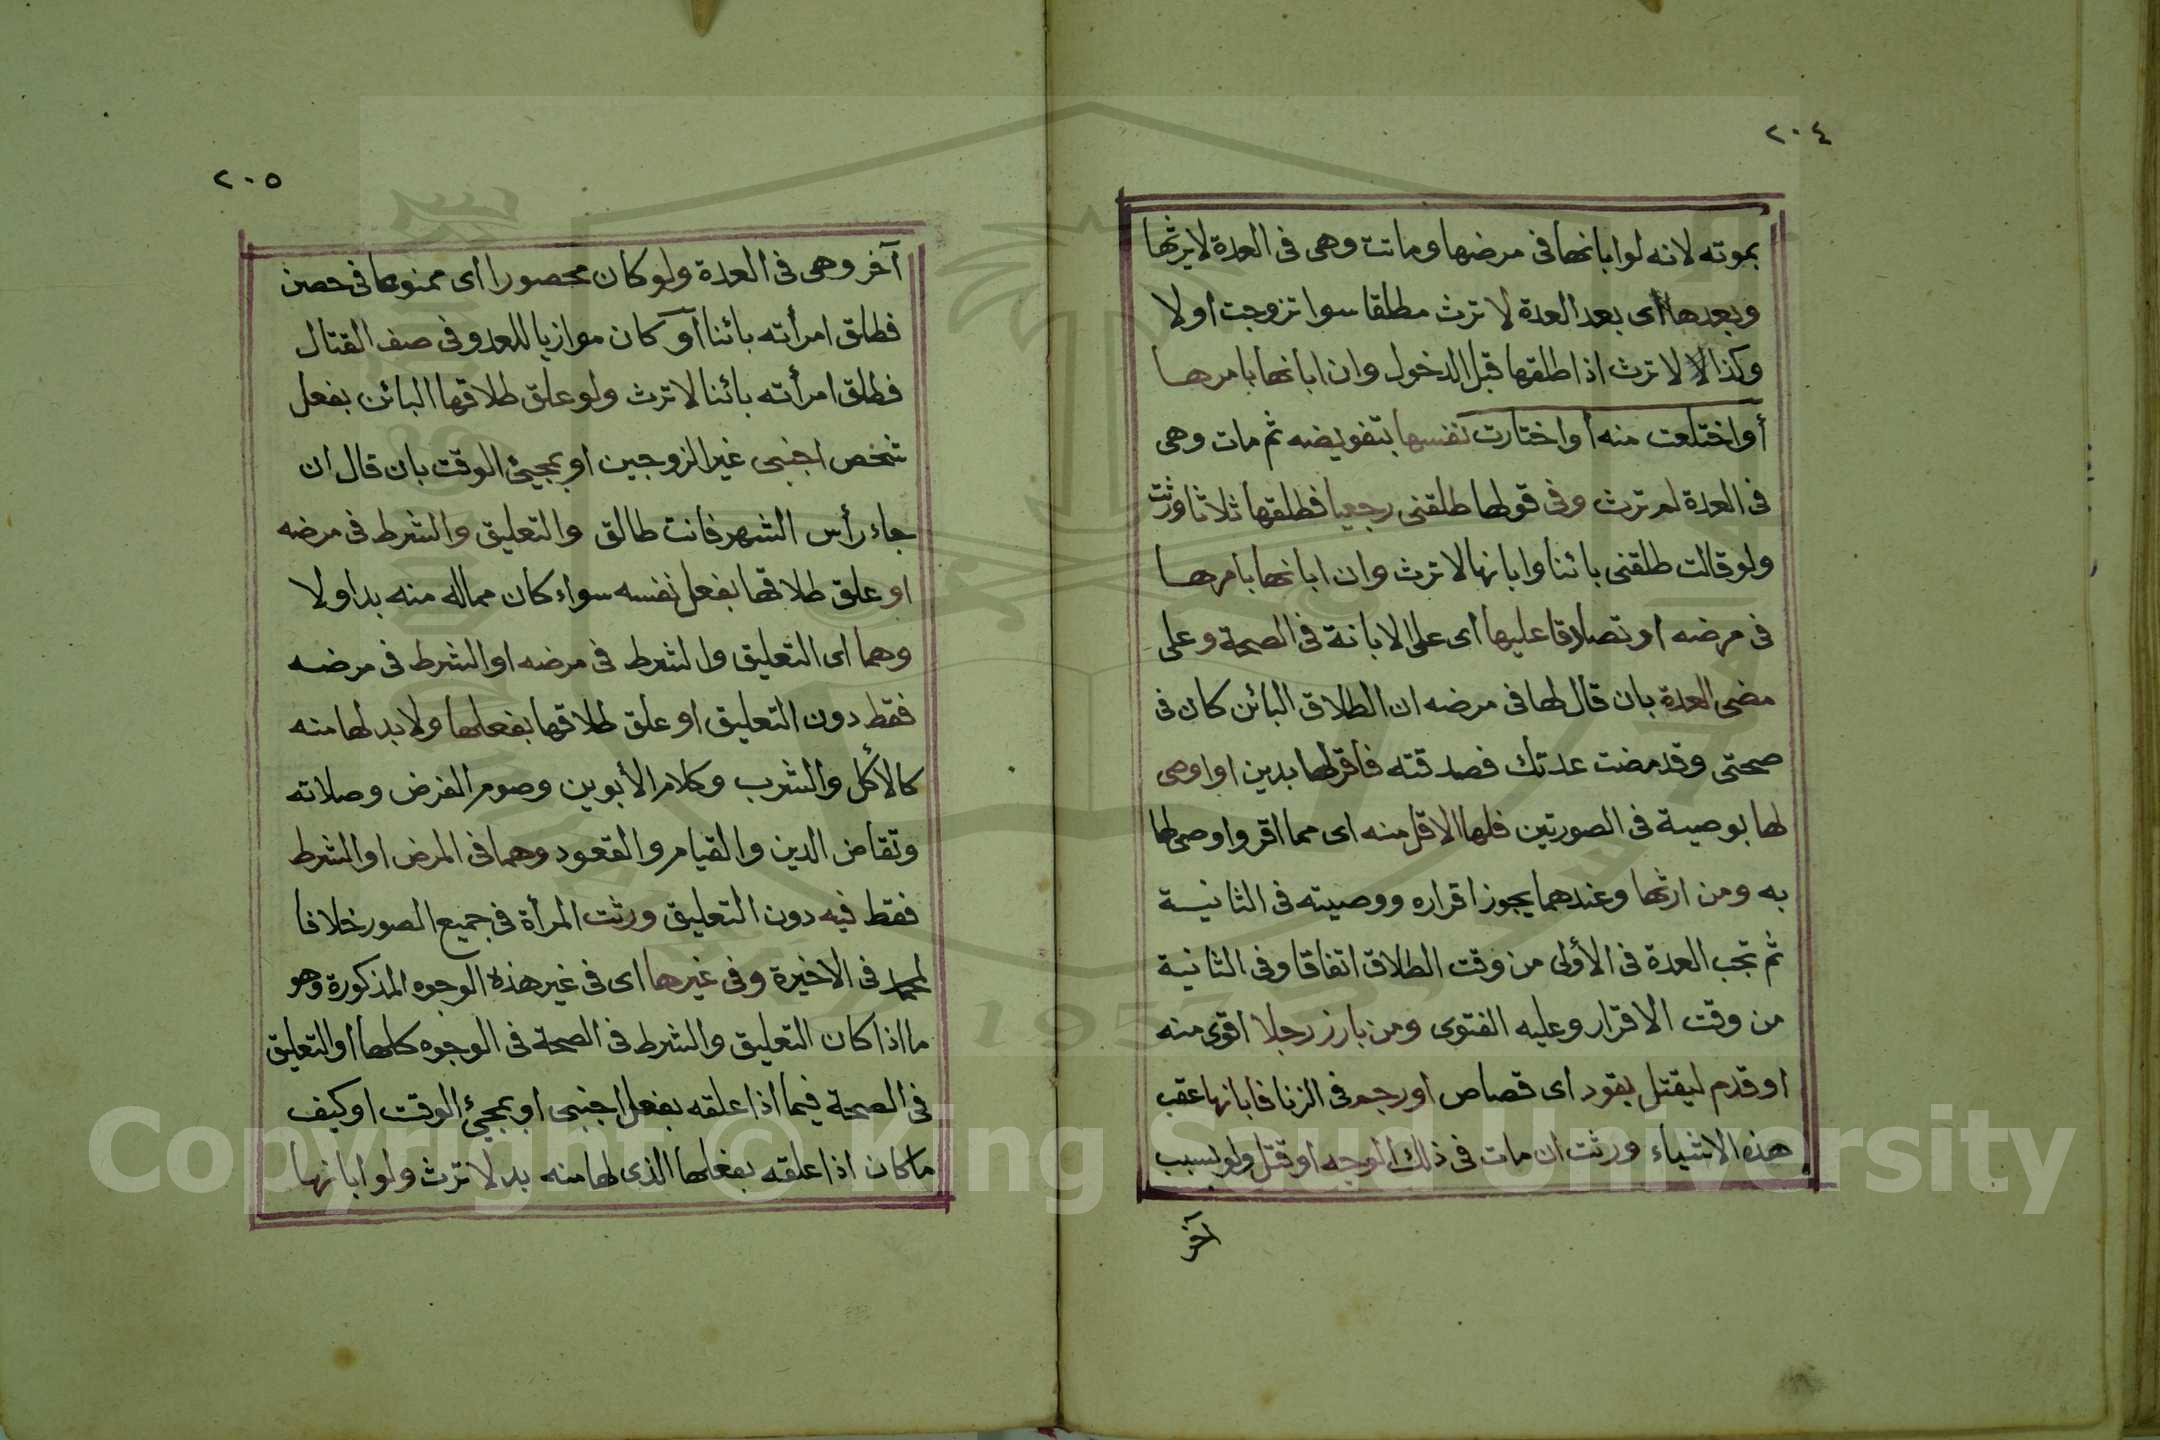 ٢٠٤
بموته لانه لوابانها فى مرضها وماتت وهى فى العدة لايرثها
وبعدها اى بعد العدة لا ترث مطلقا سوا تزوجت او لا
وكذا لا ترث اذا طلقها قبل الدخول وان ابانها بامرها
أواختلعت منه أواختارت نفسها بتفويضه ثم مات وهى
فى العدة لم ترث وفى قولها طلقنى رجعيا فطلقها ثلاثا ورثت
ولو قالت طلقنى بائنا وابانها لا ترث وان ابانها بامرها
فى مرضه او تصادقا عليها اى على الابانة فى الصحة وعلى
مضى العدة بان قال لها فى مرضه ان الطلاق البائن كان فى
صحتى وقد مضت عدتك فصدقته فاقرلها بدين اواوصى
لها بوصية فى الصورتين فلها الاقل منه اى مما اقر واوصى لها
به ومن ارثها وعندهما يجوز اقراره ووصيته فى الثانية
ثم تجب العدة فى الأولى من وقت الطلاق اتفاقا وفى الثانية
من وقت الاقرار وعليه الفتوى ومن بارز رجلا اقوى منه
او قدم ليقتل بقود اى قصاص اورجم فى الزنا فابانها عقب
هذه الاشياء ورثت ان مات فى ذلك الوجه او قتل ولو بسبب
آخر
٢٠٥
آخر وهى فى العدة ولو كان محصورا اى ممنوعا فى حصن
فطلق امرأته بائنا أو كان موازيا للعدو فى صف القتال
فطلق امرأته بائنا لا ترث ولو علق طلاقها البائن بفعل
شخص اجنبى غير الزوجين او بمجيئ الوقت بان قال ان
جاء رأس الشهر فانت طالق والتعليق والشرط فى مرضه
او علق طلاقها بفعل نفسه سواء كان مماله منه بد او لا
وهما اى التعليق والشرط فى مرضه او الشرط فى مرضه
فقط دون التعليق او علق طلاقها بفعلها ولا بد لها منه
كالأكل والشرب وكلام الأبوين وصوم الفرض وصلاته
وتقاض الدين والقيام والقعود وهما فى المرض او الشرط
فقط فيه دون التعليق ورثت المرأة فى جميع الصور خلافا
لمحمد فى الاخيرة وفى غيرها اى فى غير هذه الوجوه المذكورة وهو
ما اذا كان التعليق والشرط فى الصحة فى الوجوه كلها أو التعليق
فى الصحة فيما اذا علقه بفعل اجنبى او بمجيئ الوقت او كيف
ما كان اذا علقه بفعلها الذى لها منه بد لا ترث ولو ابانها
1957
Copyright © King Saud University